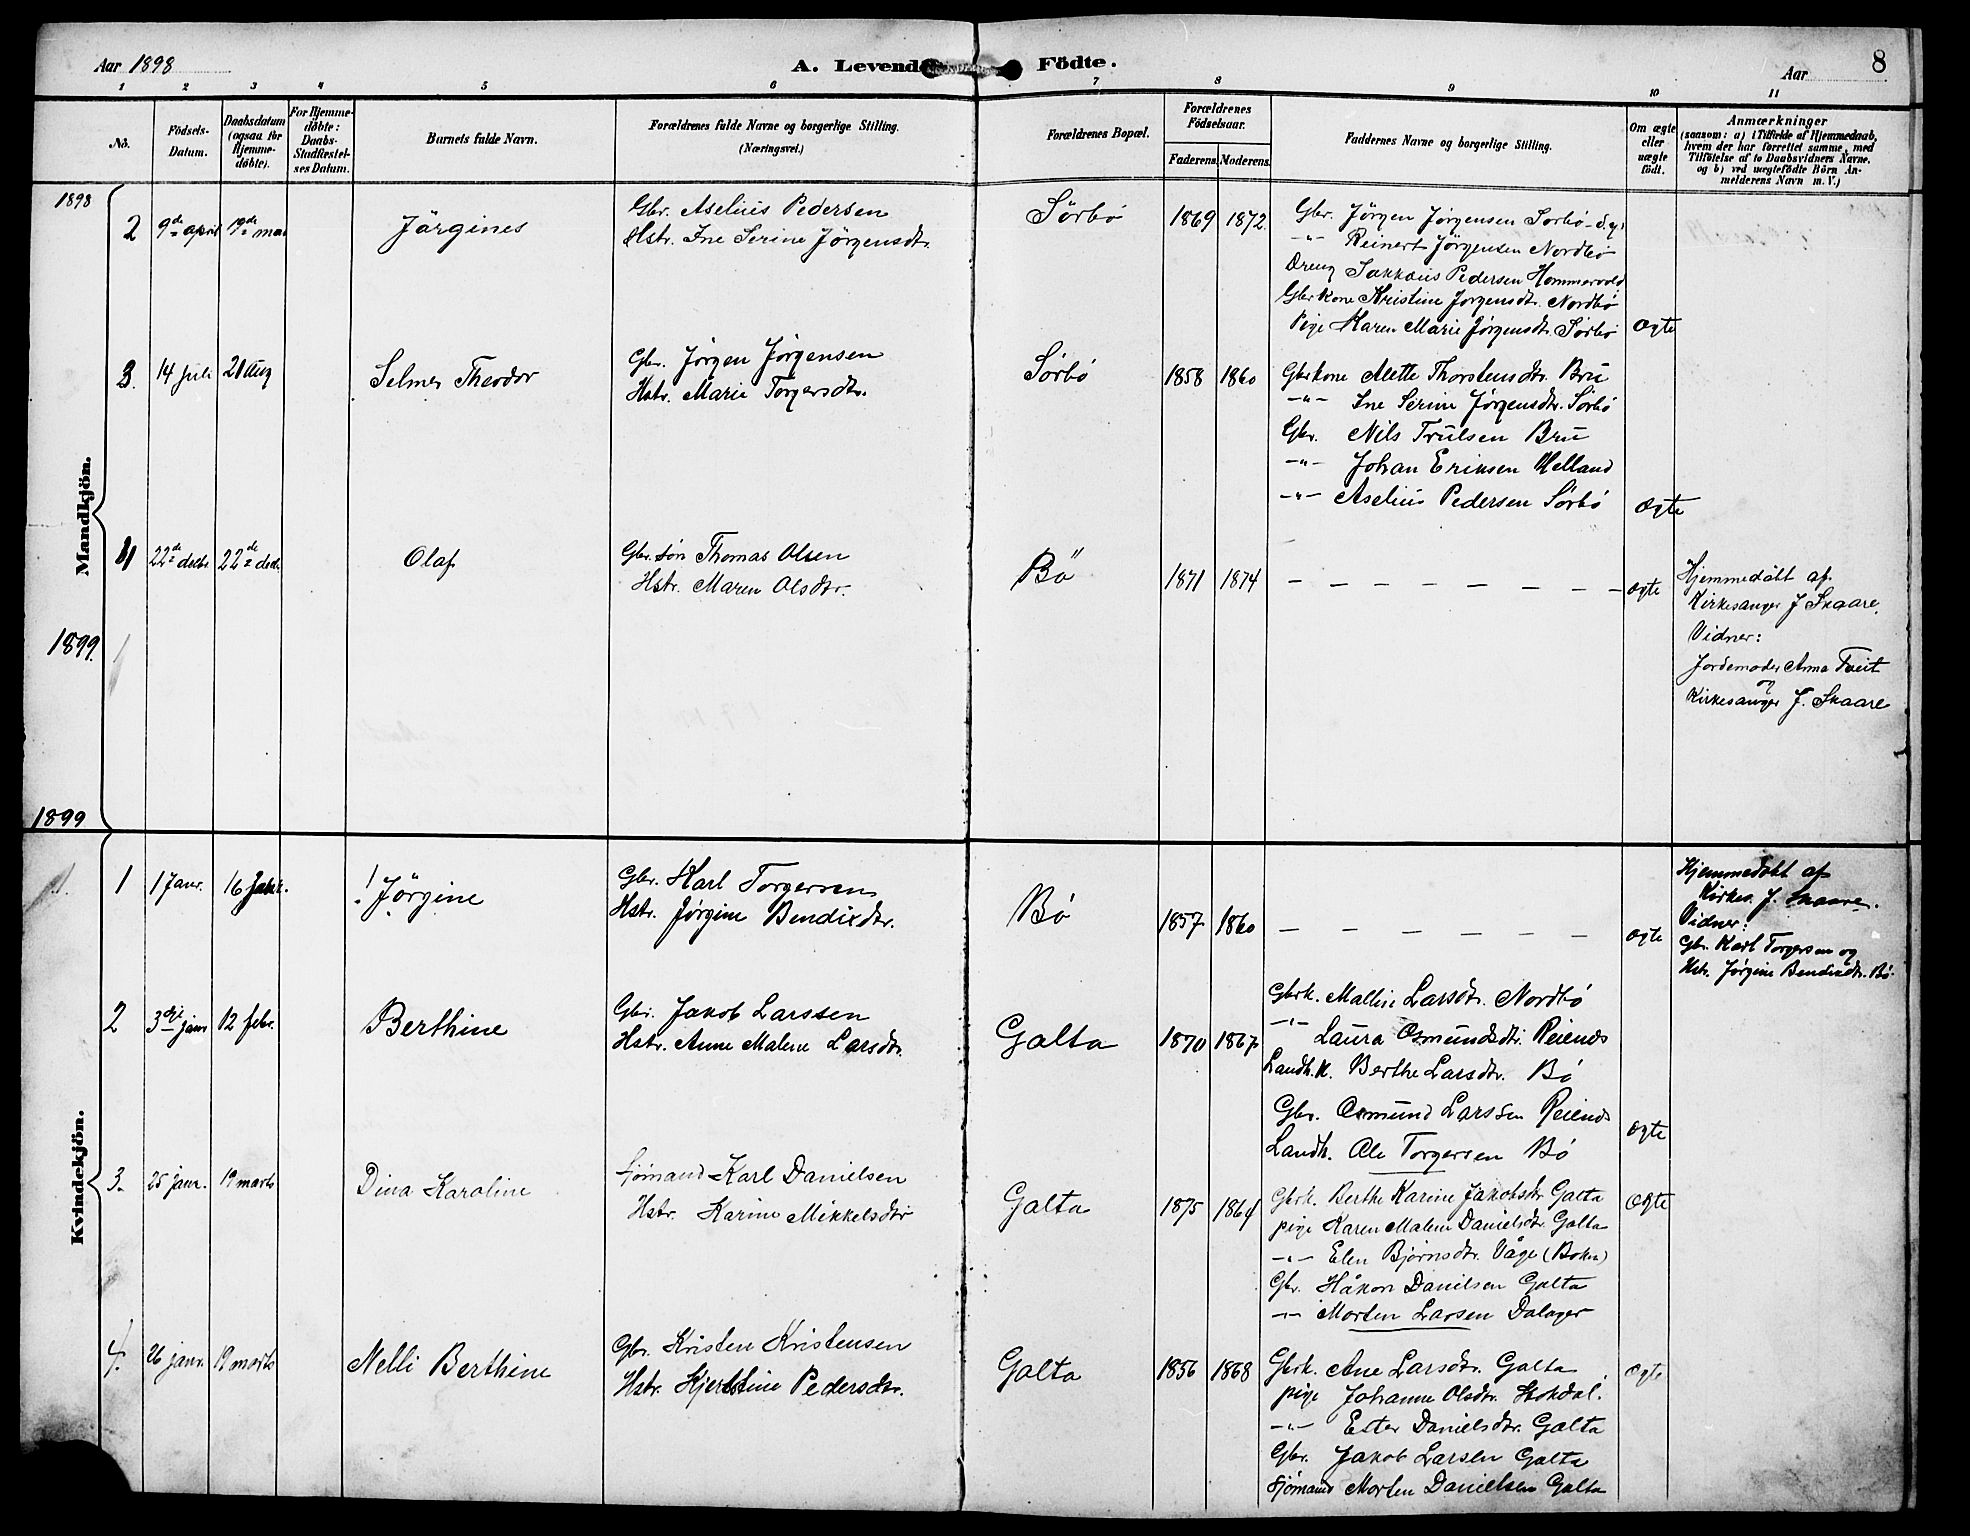 Aar 1898
A. Levende Födte.
Aar
8
1 2 3 4 5 6 7 8 9 10 11
No.
Födsels-
Datum.
Daabsdatum
(ogsaa for
Hjemme-
døbte).
For Hjemme-
døbte:
Daabs-
Stadfæstel-
ses Datum.
Barnets fulde Navn.
Forældrenes fulde Navne og borgerlige Stilling.
(Næringsvei.)
Forældrenes Bopæl.
Forældrenes
Födselsaar.
Faderens. Moderens.
Faddernes Navne og borgerlige Stilling.
Om ægte
eller
uægte
födt.
Anmærkninger
(saasom: a) i Tilfælde af Hjemmedaab,
hvem der har forrettet samme, med
Tilföielse af to Daabsvidners Navne.
og b) ved uægtefödte Börn An-
melderens Navn m. V.)
Mandkjön.
1898
2 9de april 19de mai Jörgines
Gbr. Aselius Pedersen
Hstr. Ine Serine Jörgensdtr.
Sörbö 1869 1872.
Gbr. Jörgen Jörgensen Sorbö
-"- Reinert Jörgensen Nordbö
Dreng Sakkæus Pedersen Hommervold
Gbrkone Kristine Jorgensdtr. Nordbö
Pige Karen Marie Jörgensdtr. Sörbö
ægte
3. 14 juli 21 Aug Selmer Theodor
Gbr. Jörgen Jörgensen
Hstr. Marie Torgersdtr.
Sörbö 1858 1860
Gbrkone Alette Thorstensdtr. Bru
-"- Ine Serine Jörgensdtr. Sörbö
Gbr. Nils Trulsen Bru
-"- Johan Eriksen Helland
-"- Aselius Pedersen Sörbö
ægte
4 22de decbr 22de dec. Olaf
Gbr. sön Thomas Olsen
Hstr. Maren Olsdtr.
Bö 1871 1874
– – – – – – – –
ægte
Hjemmedöbt af
Kirkesanger J Skaare.
Vidner:
Jordemoder Anna Tveit
og
Kirkesanger J. Skaare
1899.
1899
Kvindekjön.
1 1 Janr. 16 Jörgine
Gbr. Karl Torgersen
Hstr. Jörgine Bendixdtr.
Bö 1857 1860
– – – – – –
ægte
Hjemmedöbt af
Kirkes. J. Skaare.
Vidner:
Gbr. Karl Torgersen og
Hstr. Jörgine Bendixdtr. Bö
2 3die janr 12 febr. Berthine
Gbr. Jakob Larssen
Hstr. Anne Malene Larsdtr.
Galta 1870 1867
Gbrk. Malline Larsdtr. Nordbö
-"- Laura Osmundsdtr. Reienes
Landh.k. Berthe Larsdtr. Bö
Gbr. Osmund Larssen Reienes
Landh. Ole Torgersen Bö
ægte
3. 25 janr. 19 marts Dina Karoline
Sjömand Karl Danielsen
Hstr. Karine Mikkelsdtr
Galta 1875 1864
Gbrk. Berthe Karine Jakobsdtr Galta
pige Karen Malene Danielsdtr. Galta
-"- Elen Björnsdtr. Våge (Bokn)
Gbr. Håkon Danielsen Galta
-"- Morten Larsen Dalager
Ægte
4. 26 janr. 19 marts Nelli Berthine
Gbr. Kristen Kristensen
Hstr. Kjerstine Pedersdtr.
Galta 1856 1868
Gbrk. Ane Larsdtr. Galta
pige Johanne Olsdtr. Stokdal.
-"- Ester Danielsdtr. Galta
Gbr. Jakob Larsen Galta
Sjömand Morten Danielsen Galta
ægte